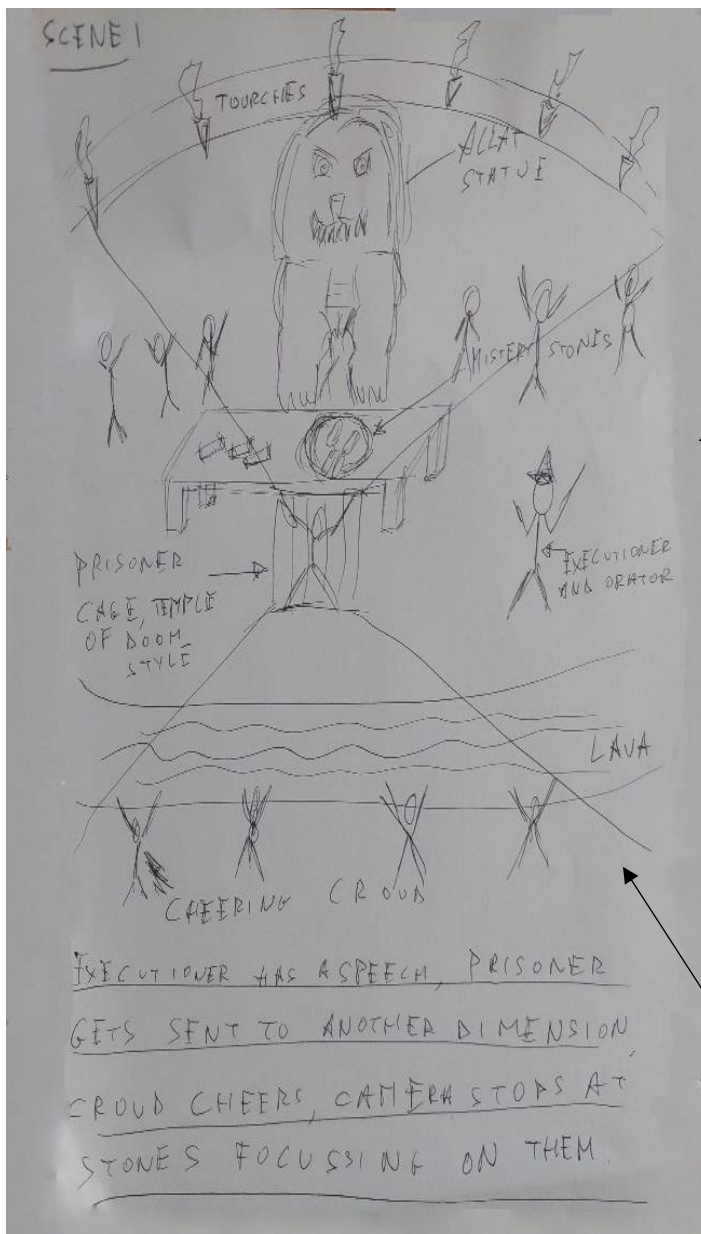 SCENE 1
TOURCHES
ALLAT
STATUE
MISTERY STONES
PRISONER
CAGE, TEMPLE
OF DOOM
STYLE
EXECUTIONER
AND ORATOR
LAVA
CHEERING CROUD
EXECUTIONER HAS A SPEECH, PRISONER
GETS SENT TO ANOTHER DIMENSION,
CROUD CHEERS, CAMERA STOPS AT
STONES FOCUSSING ON THEM.